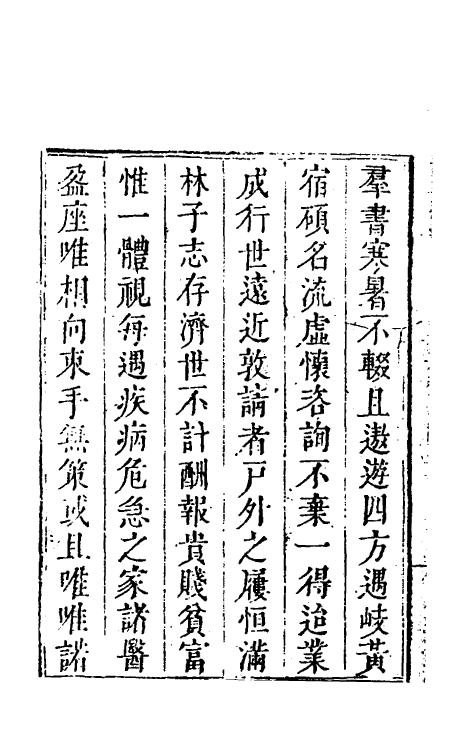 羣書寒暑不輟且遨遊四方遇岐黃
宿碩名流虛懷咨詢不棄一得迨業
成行世遠近敦請者戸外之屨恒滿
林子志存濟世不計酬報貴賤貧富
惟一體視每遇疾病危急之家諸醫
盈座唯相向束手無策或且唯唯諾